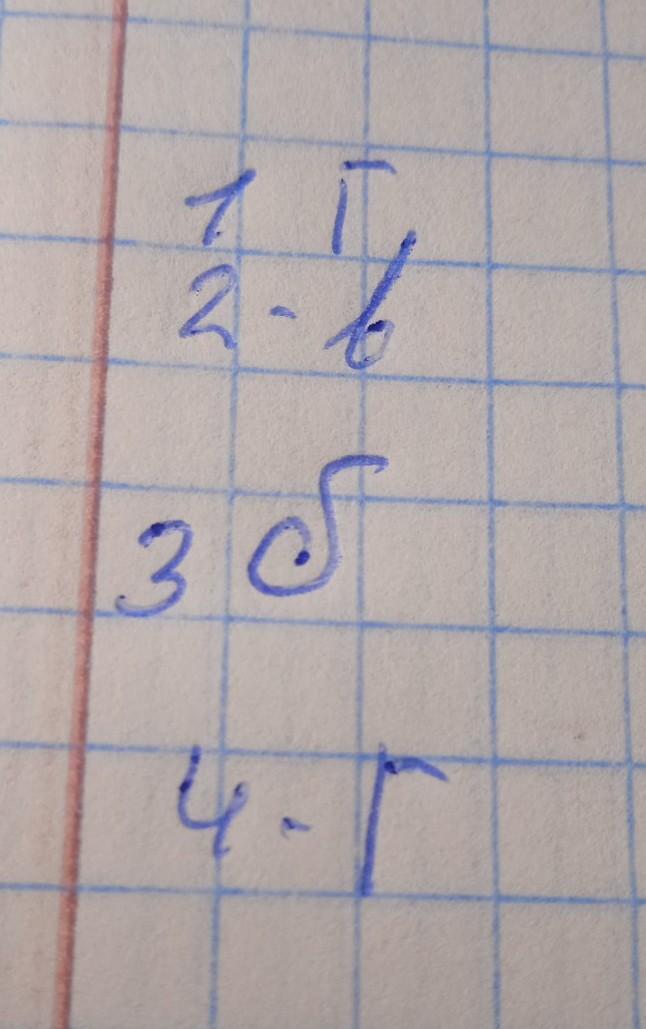 1 Г
2 - в
3 б
4 - Г